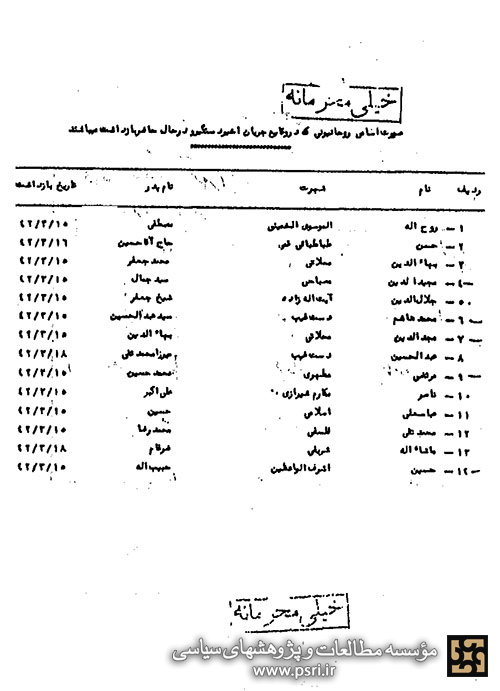 خیلی محرمانه
صورت اسامی روحانیونی که در وقایع جریان اخیر دستگیر و در حال حاضر بازداشت میباشند
ردیف نام شهرت نام پدر تاریخ بازداشت
۱ – روح اله الموسوی الخمینی مصطفی ۴۲/۳/۱۵
۲ – حسن طباطبائی قمی حاج آقا حسین ۴۲/۳/۱۶
۳ – بهاء الدین محلاتی محمد جعفر ۴۲/۳/۱۵
۴ – مجدالدین مصباحی سید جمال ۴۲/۳/۱۵
۵ – جلال الدین آیت اله زاده شیخ جعفر ۴۲/۳/۱۵
۶ – محمد هاشم دست غیب سید عبدالحسین ۴۲/۳/۱۵
۷ – مجدالدین محلاتی بهاء الدین ۴۲/۳/۱۵
۸ – عبدالحسین دست غیب میرزا محمد تقی ۴۲/۳/۱۸
۹ – مرتضی مطهری محمد حسین ۴۲/۳/۱۵
۱۰ – ناصر مکارم شیرازی علی اکبر ۴۲/۳/۱۵
۱۱ – عباسعلی اسلامی حسین ۴۲/۳/۱۵
۱۲ – محمد تقی فلسفی محمد رضا ۴۲/۳/۱۵
۱۳ – ماشاء اله ۴۲/۳/۱۸
۱۴ – حسین اشرف الواعظین حبیب اله ۴۲/۳/۱۵
خیلی محرمانه
مؤسسه مطالعات و پژوهشهای سیاسی
www.psri.ir